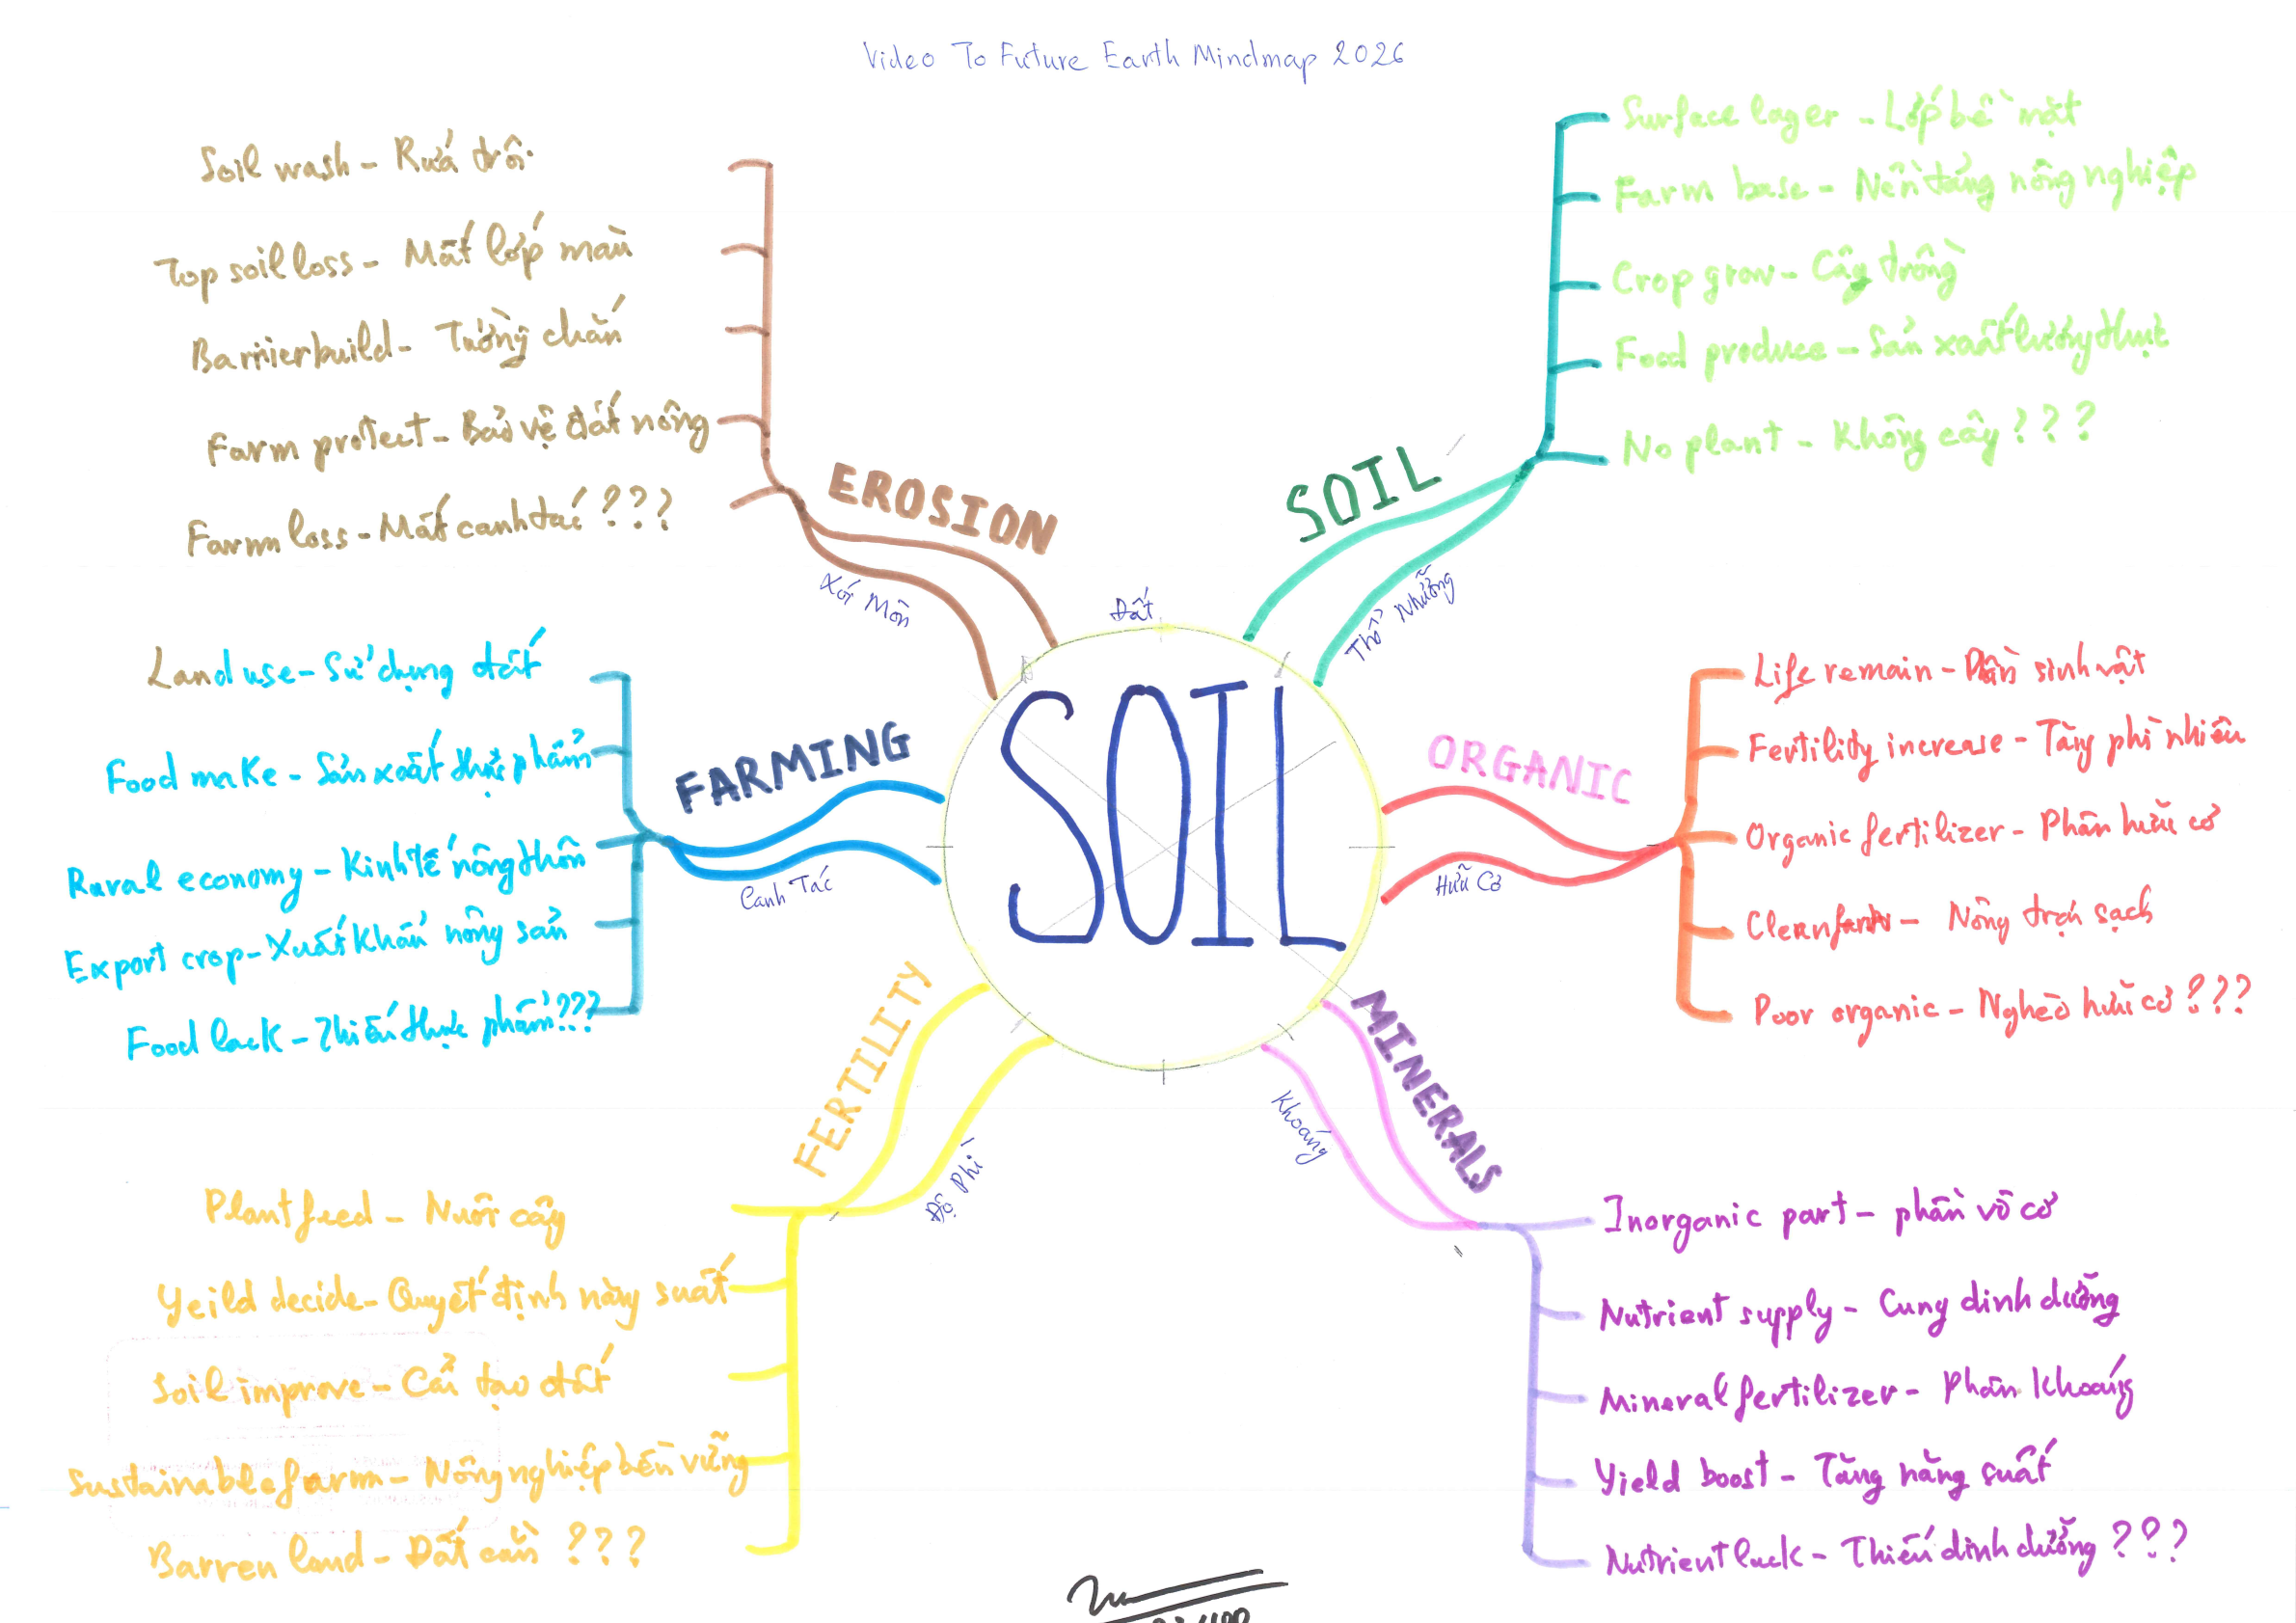 Video To Future Earth Mindmap 2026
SOIL
Đất
SOIL
Thổ Nhưỡng
Surface layer - Lớp bề mặt
Farm base - Nền tảng nông nghiệp
Crop grow - Cây trồng
Food produce - Sản xuất lương thực
No plant - Không cây ???
ORGANIC
Hữu Cơ
Life remain - sinh vật
Fertility increase - Tăng phì nhiêu
Organic fertilizer - Phân hữu cơ
Clean farm - Nông trại sạch
Poor organic - Nghèo hữu cơ ???
MINERALS
Khoáng
Inorganic part - phần vô cơ
Nutrient supply - Cung dinh dưỡng
Mineral fertilizer - Phân Khoáng
Yield boost - Tăng năng suất
Nutrient lack - Thiếu dinh dưỡng ???
FERTILITY
Độ Phì
Plant feed - Nuôi cây
Yeild decide - Quyết định năng suất
Soil improve - Cải tạo đất
Sustainable farm - Nông nghiệp bền vững
Barren land - Đất cằn ???
FARMING
Canh Tác
Land use - Sử dụng đất
Food make - Sản xuất thực phẩm
Rural economy - Kinh tế nông thôn
Export crop - Xuất Khẩu nông sản
Food lack - Thiếu thực phẩm ???
EROSION
Xói Mòn
Soil wash - Rửa trôi
Top soil loss - Mất lớp màu
Barrier build - Tường chắn
Farm protect - Bảo vệ đất nông
Farm loss - Mất canh tác ???